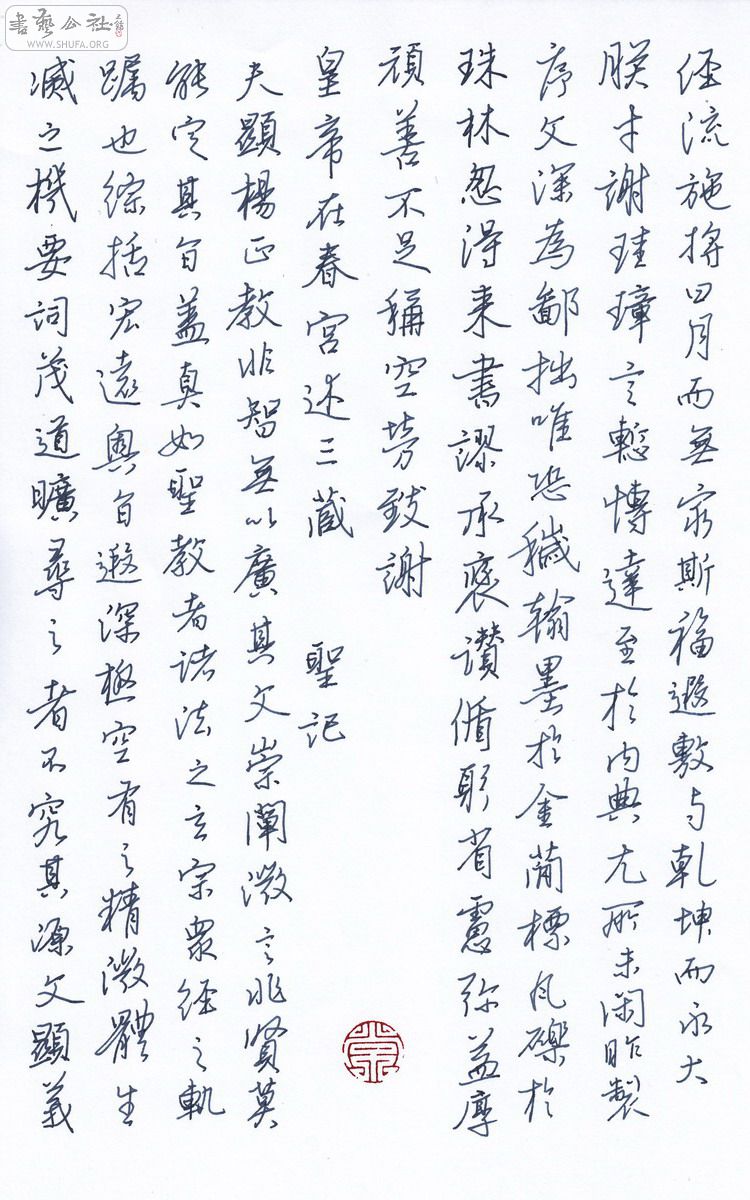 書藝公社
WWW.SHUFA.ORG
經流施將日月而無窮斯福遐敷与乾坤而永大
朕才謝珪璋言慙博達至於内典尤所未閑昨製
序文深為鄙拙唯恐穢翰墨於金蕳標瓦礫於
珠林忽得来書謬承褒讃循躬省慮弥益厚
顔善不足稱空勞致謝
皇帝在春宮述三藏 聖記
夫顯楊正教非智無以廣其文崇闡微言非賢莫
能定其旨盖真如聖教者諸法之玄宗衆經之軌
躅也綜括宏遠奧旨遐深極空有之精微體生
滅之機要詞茂道曠尋之者不究其源文顯義